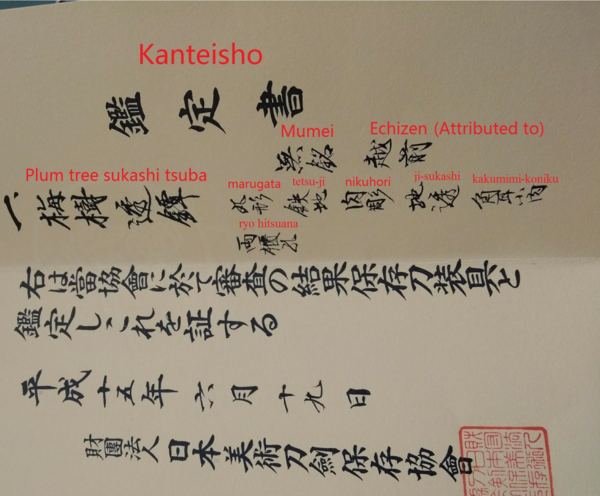 Kanteisho
鑑定書
Mumei Echizen (Attributed to)
無銘 越前
Plum tree sukashi tsuba marugata tetsu-ji nikuhori ji-sukashi kakumimi-koniku
一、梅樹透鐔 丸形 鉄地 肉彫 地透 角耳小肉
ryo hitsuana
両櫃孔
右は當協會に於て審査の結果保存刀装具と
鑑定しこれを証する
平成十五年六月十九日
財團法人 日本美術刀劍保存協會